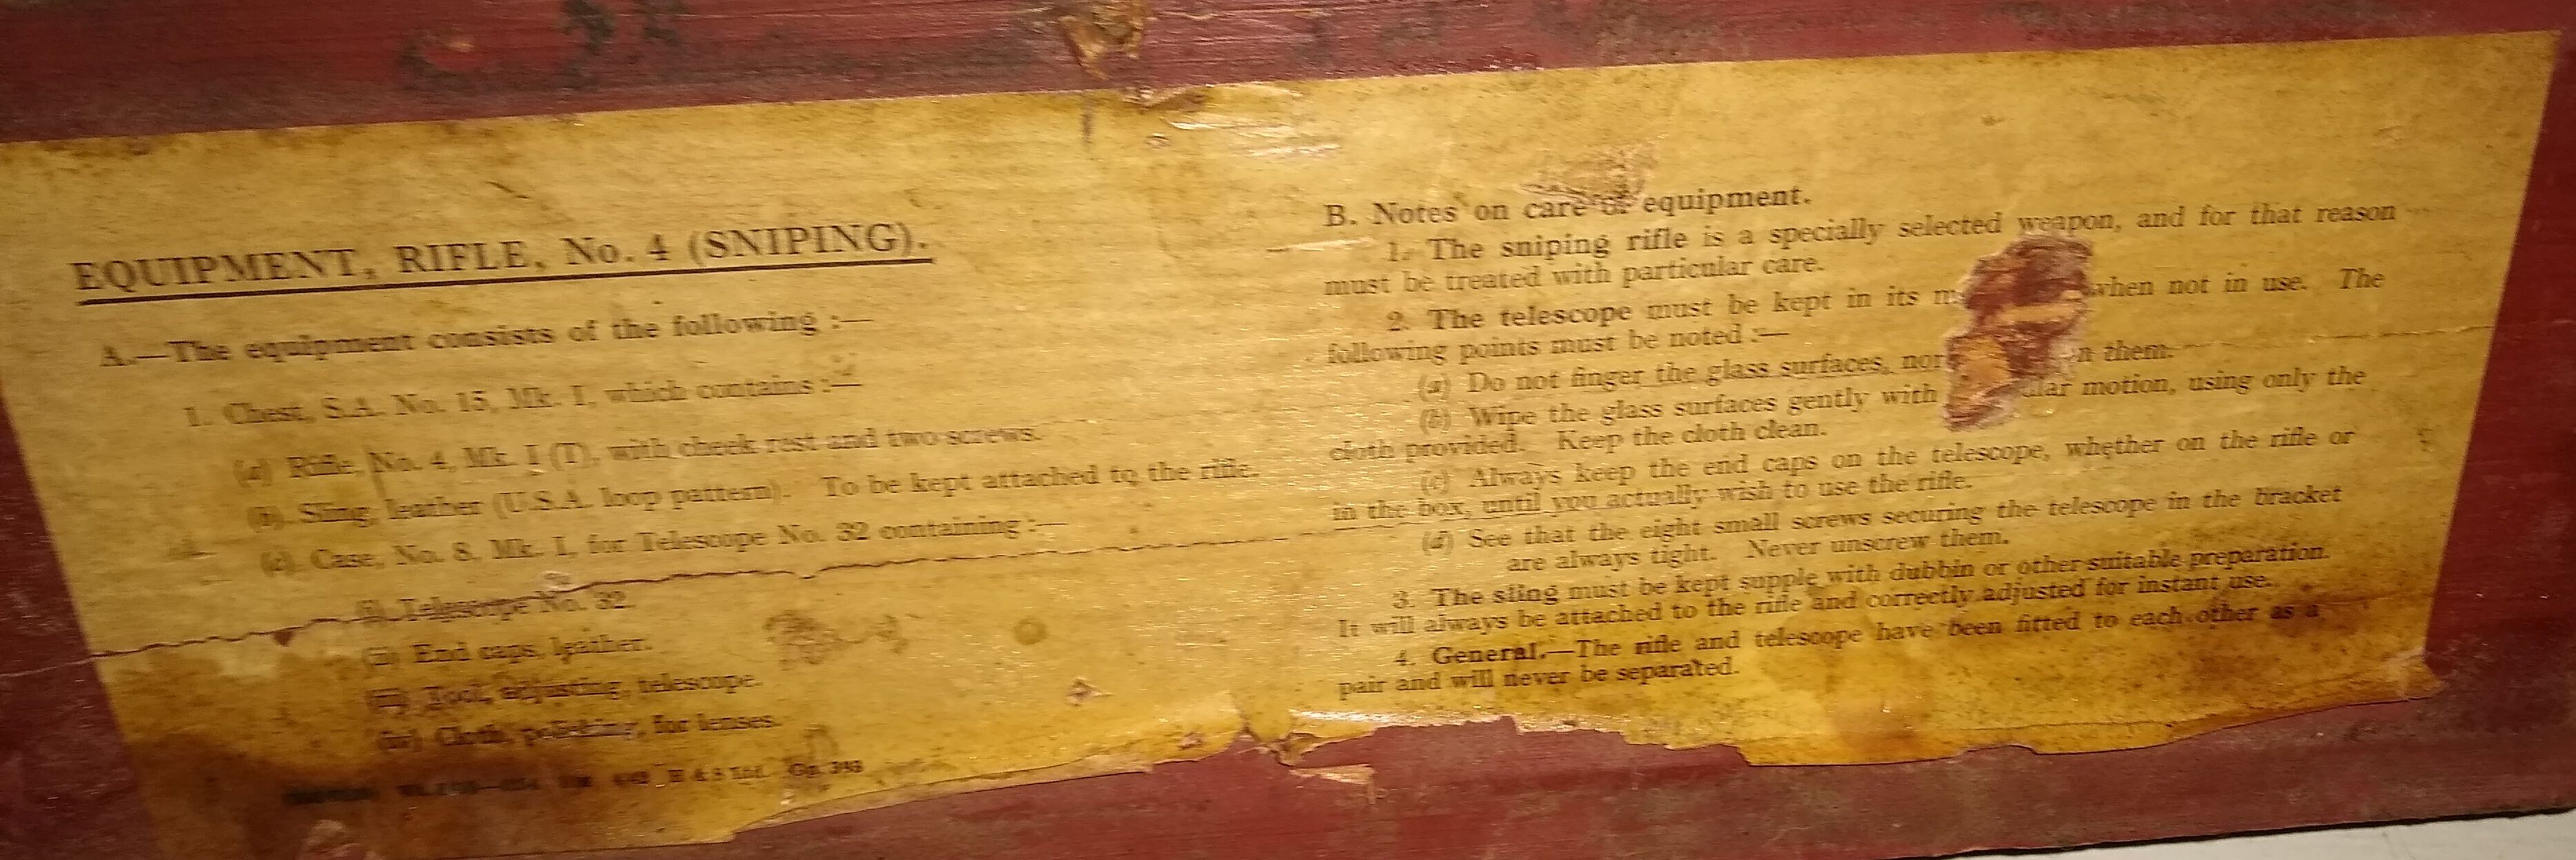 EQUIPMENT, RIFLE, No. 4 (SNIPING).
A.—The equipment consists of the following :—
1. Chest, S.A. No. 15, Mk. I, which contains :—
(a) Rifle, No. 4, Mk. I (T), with cheek rest and two screws.
(b) Sling, leather (U.S.A. loop pattern). To be kept attached to the rifle.
(c) Case, No. 8, Mk. I, for Telescope No. 32 containing :—
(i) Telescope No. 32.
(ii) End caps, leather.
(iii) Tool, adjusting, telescope.
(iv) Cloth, polishing, for lenses.
H & S Ltd. Gp. 393
B. Notes on care of equipment.
1. The sniping rifle is a specially selected weapon, and for that reason
must be treated with particular care.
2. The telescope must be kept in its when not in use. The
following points must be noted :—
(a) Do not finger the glass surfaces, nor them.
(b) Wipe the glass surfaces gently with motion, using only the
cloth provided. Keep the cloth clean.
(c) Always keep the end caps on the telescope, whether on the rifle or
in the box, until you actually wish to use the rifle.
(d) See that the eight small screws securing the telescope in the bracket
are always tight. Never unscrew them.
3. The sling must be kept supple with dubbin or other suitable preparation.
It will always be attached to the rifle and correctly adjusted for instant use.
4. General.—The rifle and telescope have been fitted to each other as a
pair and will never be separated.